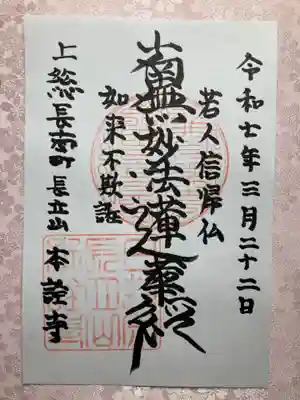 令和七年三月二十二日
若人信帰仏
南無妙法蓮華経
如来不欺誑
上総長南町長立山 本詮寺